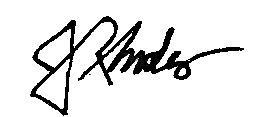 J Rhodes